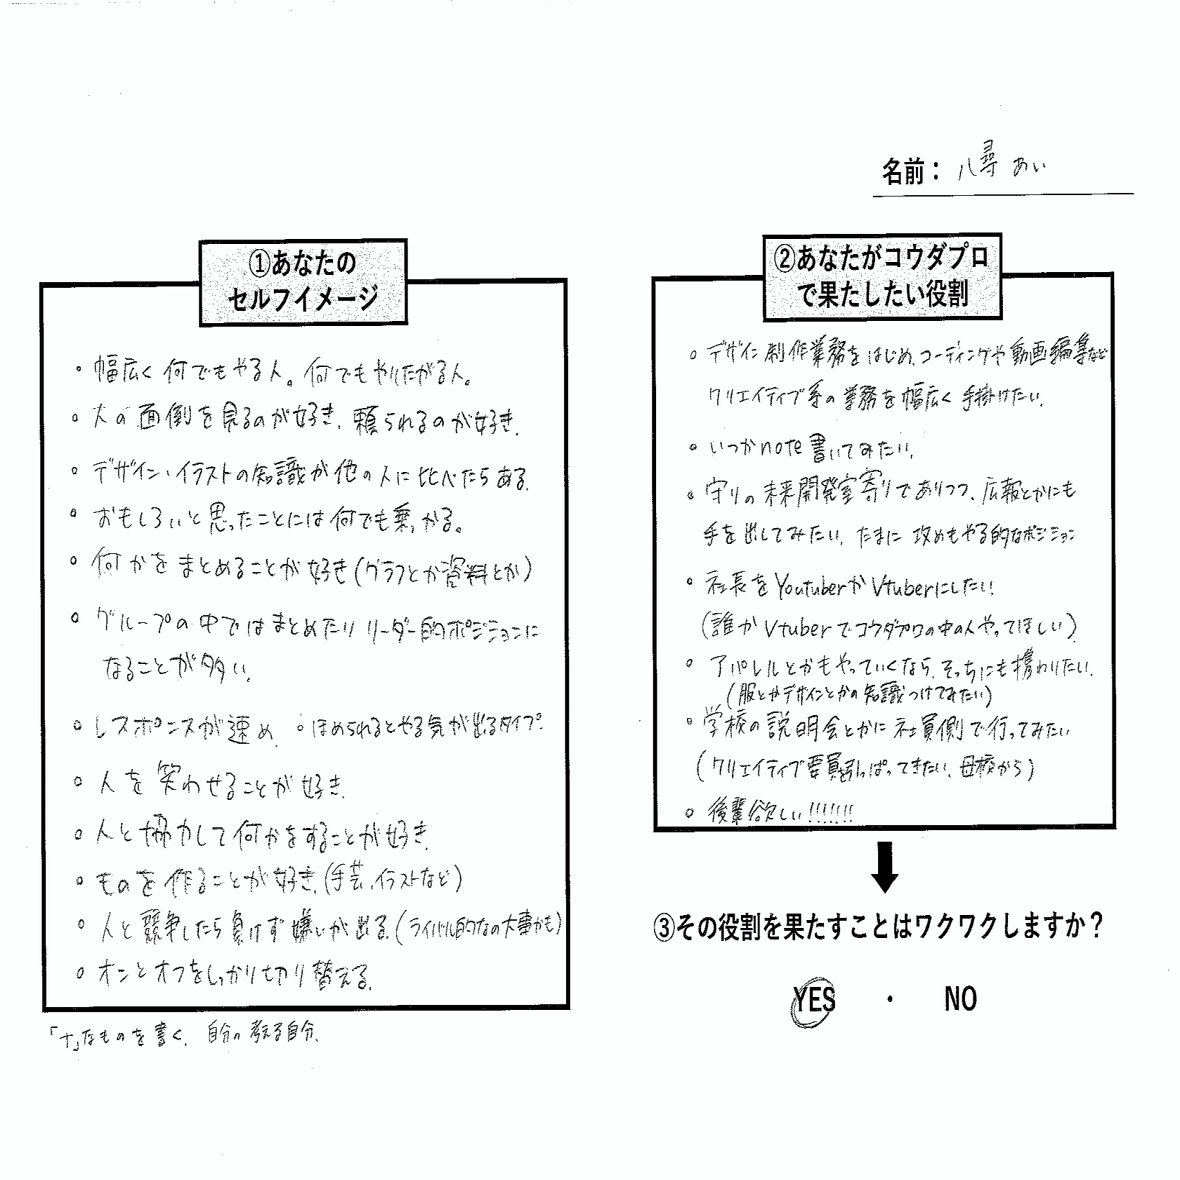 名前： 八尋 あい
①あなたの
セルフイメージ
。幅広く何でもやる人。何でもやりたがる人。
。人の面倒を見るのが好き、頼られるのが好き。
。デザイン・イラストの知識が他の人に比べたらある。
。おもしろいと思ったことには何でも乗っかる。
。何かをまとめることが好き(グラフとか資料とか)
。グループの中ではまとめたりリーダー的ポジションに
なることが多い。
。レスポンスが速め。 。ほめられるとやる気が出るタイプ。
。人を笑わせることが好き。
。人と協力して何かをすることが好き。
。ものを作ることが好き。(手芸、イラストなど)
。人と競争したら負けず嫌いが出る。(ライバル的なの大事かも)
。オンとオフをしっかり切り替える。
「+」なものを書く、自分の考える自分、
②あなたがコウダプロ
で果たしたい役割
。デザイン制作業務をはじめ、コーディングや動画編集など
クリエイティブ系の業務を幅広く手掛けたい。
。いつかnote書いてみたい。
。守りの未来開発室寄りでありつつ、広報とかにも
手を出してみたい。たまに攻めもやる的なポジション
。社長をYoutuberかVtuberにしたい!
(誰かVtuberでコウダプロの中の人やってほしい)
。アパレルとかもやっていくなら、そっちにも携わりたい。
(服とかデザインとかの知識つけてみたい)
。学校の説明会とかに社員側で行ってみたい
(クリエイティブ要員引っぱってきたい、母校から)
。後輩欲しい!!!!!!!
③その役割を果たすことはワクワクしますか？
YES ・ NO